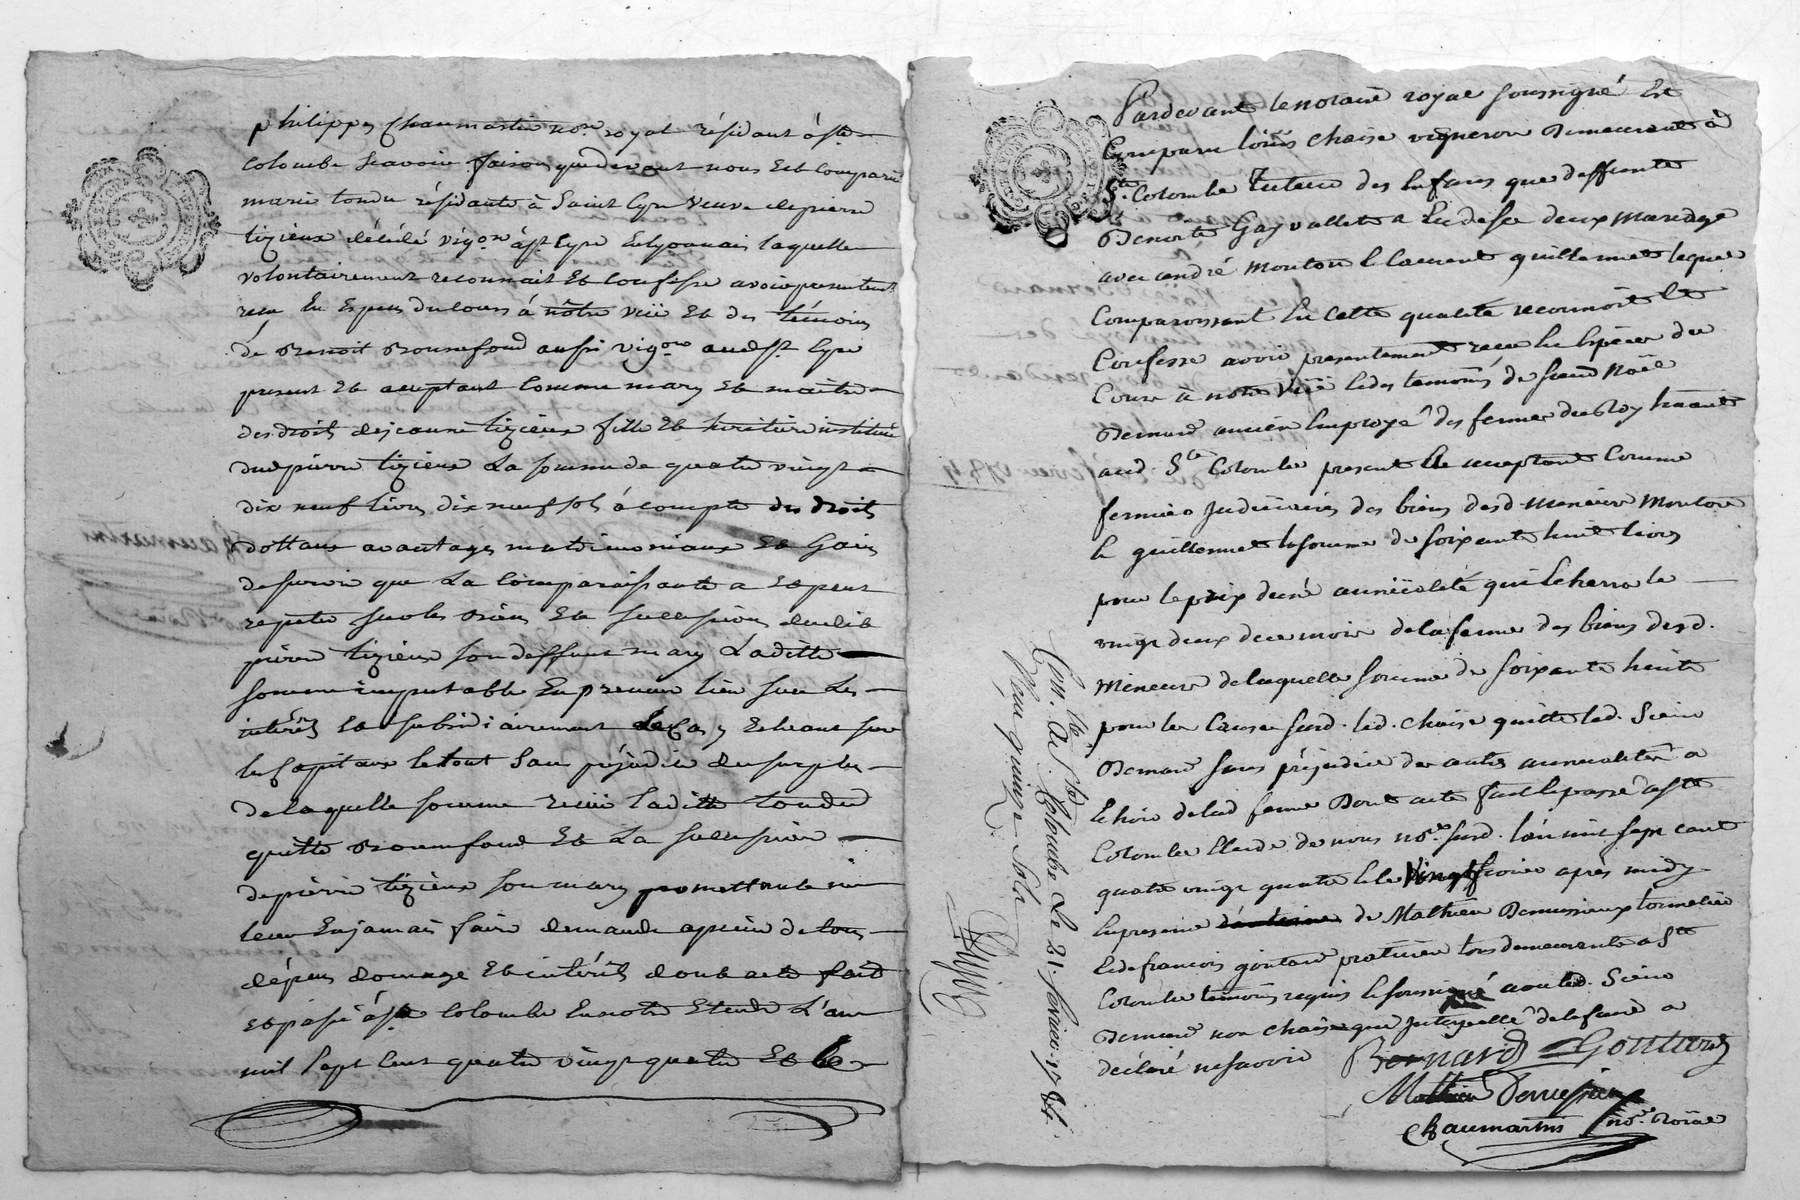 philippes Chaumartin no.re royal résidant à Ste
Colombe scavoir faisons que devant nous Est comparu
marie tondu résidante à Saint Cyre veuve de pierre
tizieux décédé vig.on à St Cyre En lyonnais laquelle
volontairement reconnait Et Confesse avoir presentement
reçu En Espèces du Cours à nôtre vüe Et des témoins
de Benoit Bonnefond aussi vig.on audt St Cyre
present Et acceptant Comme mary Et maitre
des droits de jeanne tizieux fille Et heritiere instituée
dud pierre tizieux La somme de quatre vingt
dix neuf livres dix neuf sols à compte des droits
dottaux avantages matrimoniaux Et Gains
de survie que La Comparaissante a Et peut
repeter sur les Biens Et succession dudit
pierre tizieux son deffunt mary Laditte
somme imputable En premier lieu sur Les
intérêts Et subsidiairement le Cas y Echeant sur
les Capitaux le tout Sans préjudice du surplus
de laquelle somme reçüe laditte tondu
quitte Bonnefond Et La succession
de pierre tizieux son mary promettant de ne
leur En jamais faire demande à peine de tous
dépens domage Et intérêts dont acte fait
Et passé à Ste Colombe En notre Etude L'an
mil sept Cent quatre vingt quatre Et le
Pardevant le notaire royal soussigné Est
Comparu loüis chaise vigneron Demeurant à
Ste Colombe Tuteur des Enfants que deffunte
Benoite Gay vallet a Eu de ses deux mariages
avec andré mouton & laurent guillermet lequel
Comparoissant En cette qualité reconnoit Et
Confesse avoir presentement reçu En Espèces du
Cours à notre vüe & des temoins de sieur Noël
Bernard ancien Employé des fermes du Roy habitant
aud. Ste Colombe present & acceptant Comme
fermier judiciaire des biens desd. mineurs mouton
& guillermet la somme de soixante huit livres
pour le prix d'une annualité qui Echerra le
vingt deux du mois de la ferme des biens desd.
mineurs de laquelle somme de soixante huit
pour les Causes susd. led. chaise quitte led. Sieur
Bernard sans préjudice des autres annualités à
Echoir de lad ferme Dont acte fait & passé à Ste
Colombe Etude de nous no.re susd. l'an mil sept cent
quatre vingt quatre & le vingt fevrier après midy
En presence de Mathieu Demussieux tonnelier
& de francois gontard praticien tous demeurants à Ste
Colombe temoins requis & soussignés avec led. Sieur
Bernard non chaise que interpellé de le faire a
déclaré ne savoir
Bernard Gontard
Mathieu Demussieux
Chaumartin no.re Roial
Con. à Ste Colombe Le 21. fevrier 1784.
Reçu quinze sols